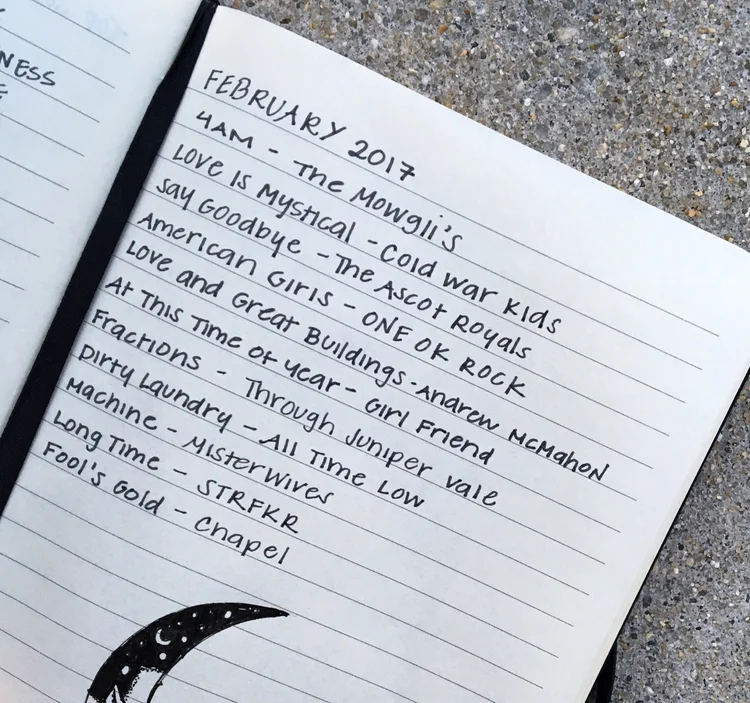 NESS
FEBRUARY 2017
4AM - The Mowgli's
Love Is Mystical - Cold War Kids
Say Goodbye - The Ascot Royals
American Girls - ONE OK ROCK
Love and Great Buildings - Andrew McMahon
At This Time of Year - Girl Friend
Fractions - Through Juniper Vale
Dirty Laundry - All Time Low
Machine - MisterWives
Long Time - STRFKR
Fool's Gold - Chapel